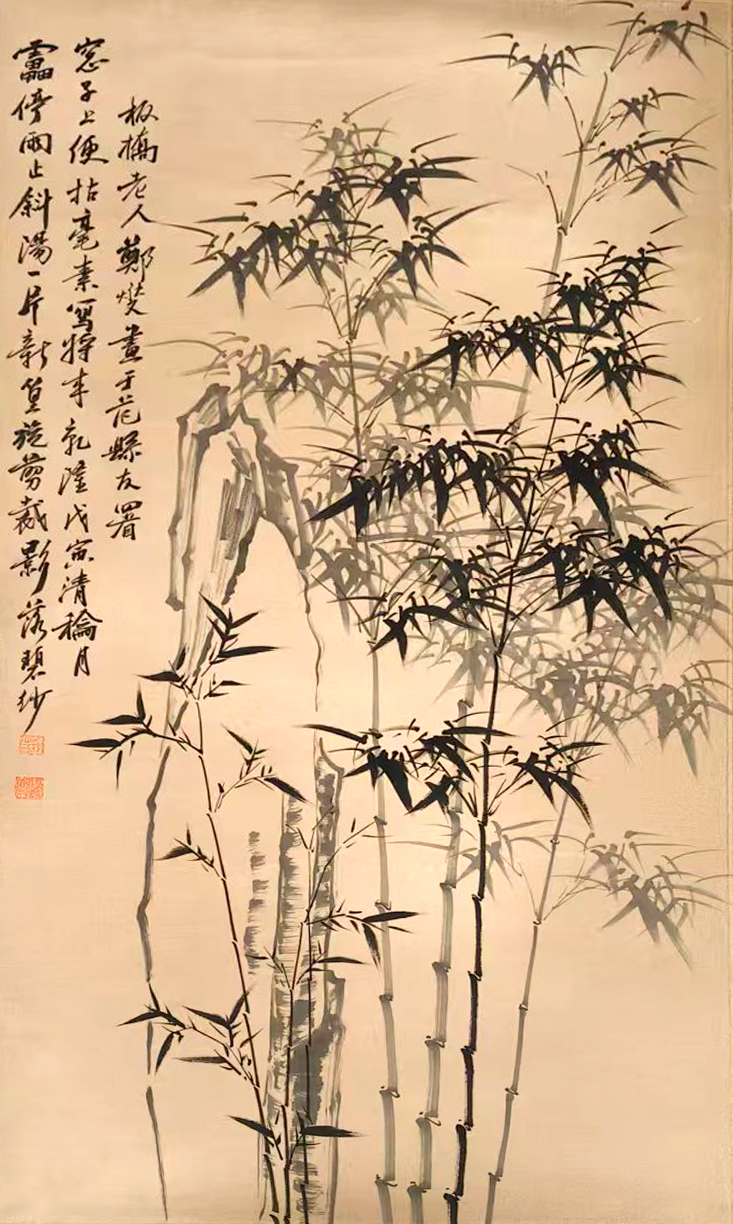 靁停雨止斜陽一片新篁旋剪裁影落碧紗
窓子上便拈毫素寫將来乾隆戊寅清穐月
板橋老人鄭燮畫于范縣友署